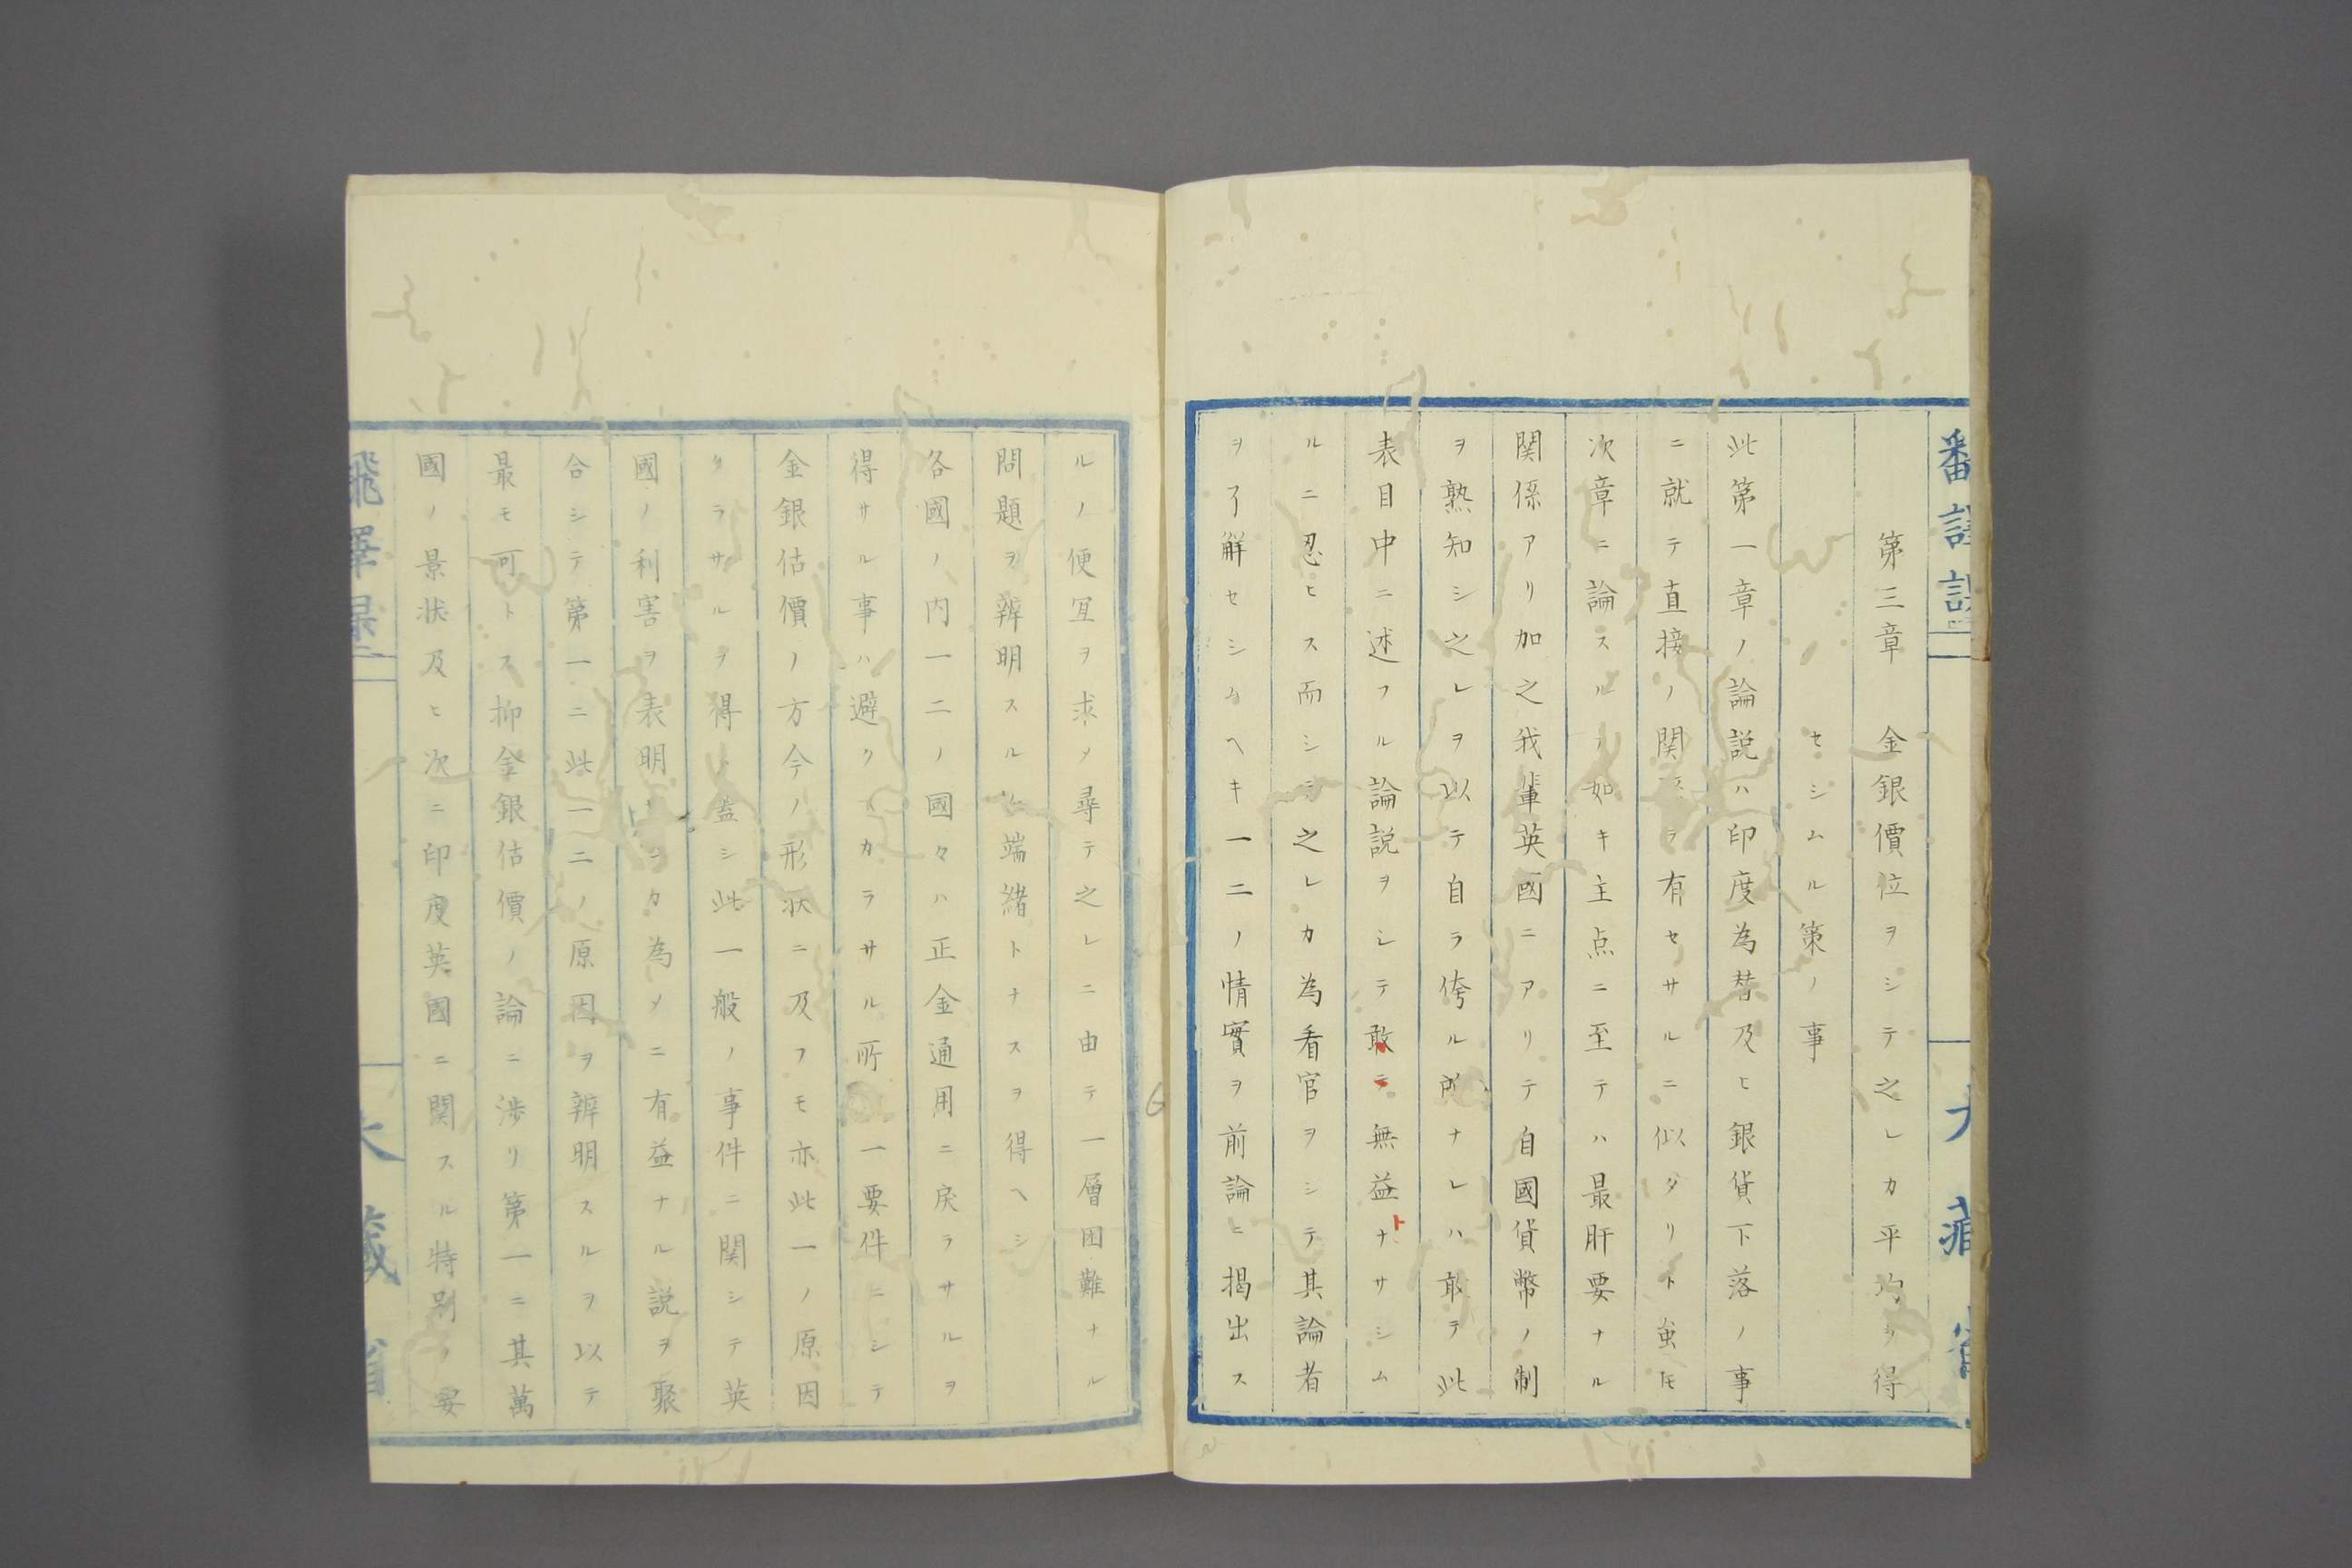 第三章　金銀價位ヲシテ之レカ平均ヲ得
セシムル策ノ事
此第一章ノ論説ハ印度為替及ヒ銀貨下落ノ事
ニ就テ直接ノ関係ヲ有セサルニ似タリト虽𪜈
次章ニ論スルカ如キ主点ニ至テハ最肝要ナル
関係アリ加之我輩英國ニアリテ自國貨幣ノ制
ヲ熟知シ之レヲ以テ自ラ侉ル所ナレハ敢テ此
表目中ニ述フル論説ヲシテ敢テ無益ナサシム
ト
ルニ忍ヒス而シテ之レカ為看官ヲシテ其論者
ヲ了解セシムヘキ一二ノ情實ヲ前論ニ揭出ス
ルノ便宜ヲ求メ尋テ之レニ由テ一層困難ナル
問題ヲ辨明スルノ端緒トナスヲ得ヘシ
各國ノ内一二ノ國々ハ正金通用ニ戻ラサルヲ
得サル事ハ避クヘカラサル所一要件ニシテ
金銀估價ノ方今ノ形状ニ及フモ亦此一ノ原因
タラサルヲ得ス蓋シ此一般ノ事件ニ関シテ英
國ノ利害ヲ表明センカ為メニ有益ナル説ヲ聚
合シテ第一ニ此一二ノ原因ヲ辨明スルヲ以テ
最モ可トス抑金銀估價ノ論ニ渉リ第一ニ其萬
國ノ景状及ヒ次ニ印度英國ニ関スル特別ノ要
大藏省